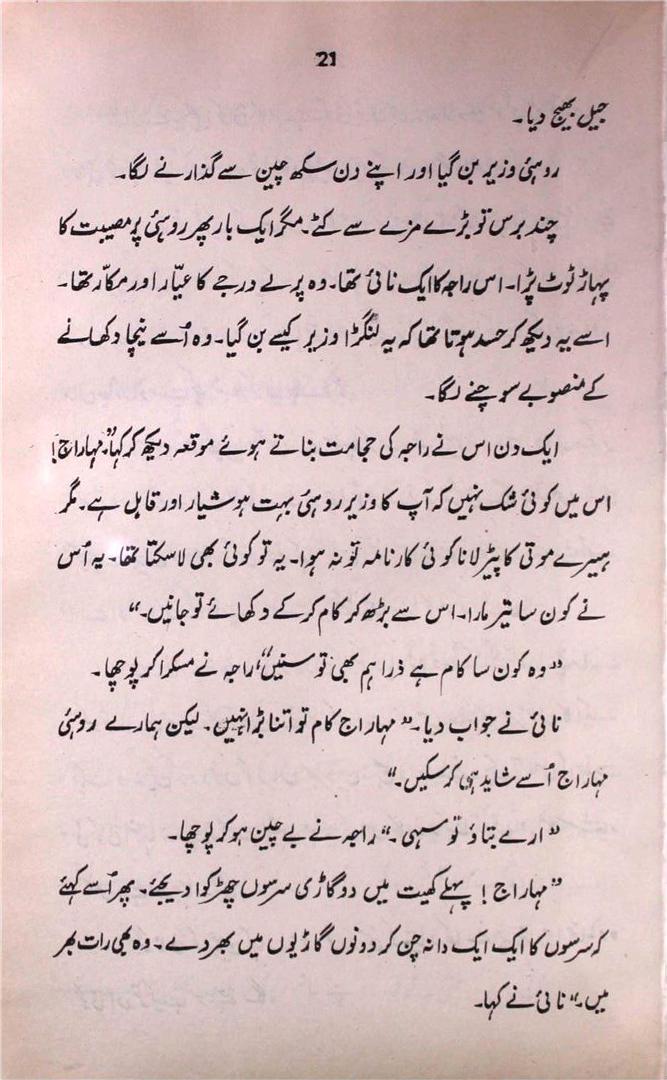 21
جیل بھیج دیا۔
روہنی وزیر بن گیا اور اپنے دن سکھ چین سے گذارنے لگا۔
چند برس تو بڑے مزے سے کٹے۔ مگر ایک بار پھر روہنی پر مصیبت کا
پہاڑ ٹوٹ پڑا۔ اس راجہ کا ایک نائی تھا۔ وہ پرلے درجے کا عیّار اور مکّار تھا۔
اسے یہ دیکھ کر حسد ہوتا تھا کہ یہ لنگڑا وزیر کیسے بن گیا۔ وہ اُسے نیچا دکھانے
کے منصوبے سوچنے لگا۔
ایک دن اس نے راجہ کی حجامت بناتے ہوئے موقعہ دیکھ کر کہا، "مہاراج!
اس میں کوئی شک نہیں کہ آپ کا وزیر روہنی بہت ہوشیار اور قابل ہے۔ مگر
ہیرے موتی کا پیڑ لانا کوئی کارنامہ تو نہ ہوا۔ یہ تو کوئی بھی لا سکتا تھا۔ یہ اُس
نے کون سا تیر مارا۔ اس سے بڑھ کر کام کر کے دکھائے تو جانیں۔"
"وہ کون سا کام ہے ذرا ہم بھی تو سنیں"، راجہ نے مسکرا کر پوچھا۔
نائی نے جواب دیا۔ "مہاراج کام تو اتنا بڑا نہیں۔ لیکن ہمارے روہنی
مہاراج اُسے شاید ہی کر سکیں۔"
"ارے بتاؤ تو سہی۔" راجہ نے بے چین ہو کر پوچھا۔
"مہاراج! پہلے کھیت میں دو گاڑی سرسوں چھڑکوا دیجئے۔ پھر اُسے کہئے
کہ سرسوں کا ایک ایک دانہ چن کر دونوں گاڑیوں میں بھر دے۔ وہ بھی رات بھر
میں۔" نائی نے کہا۔